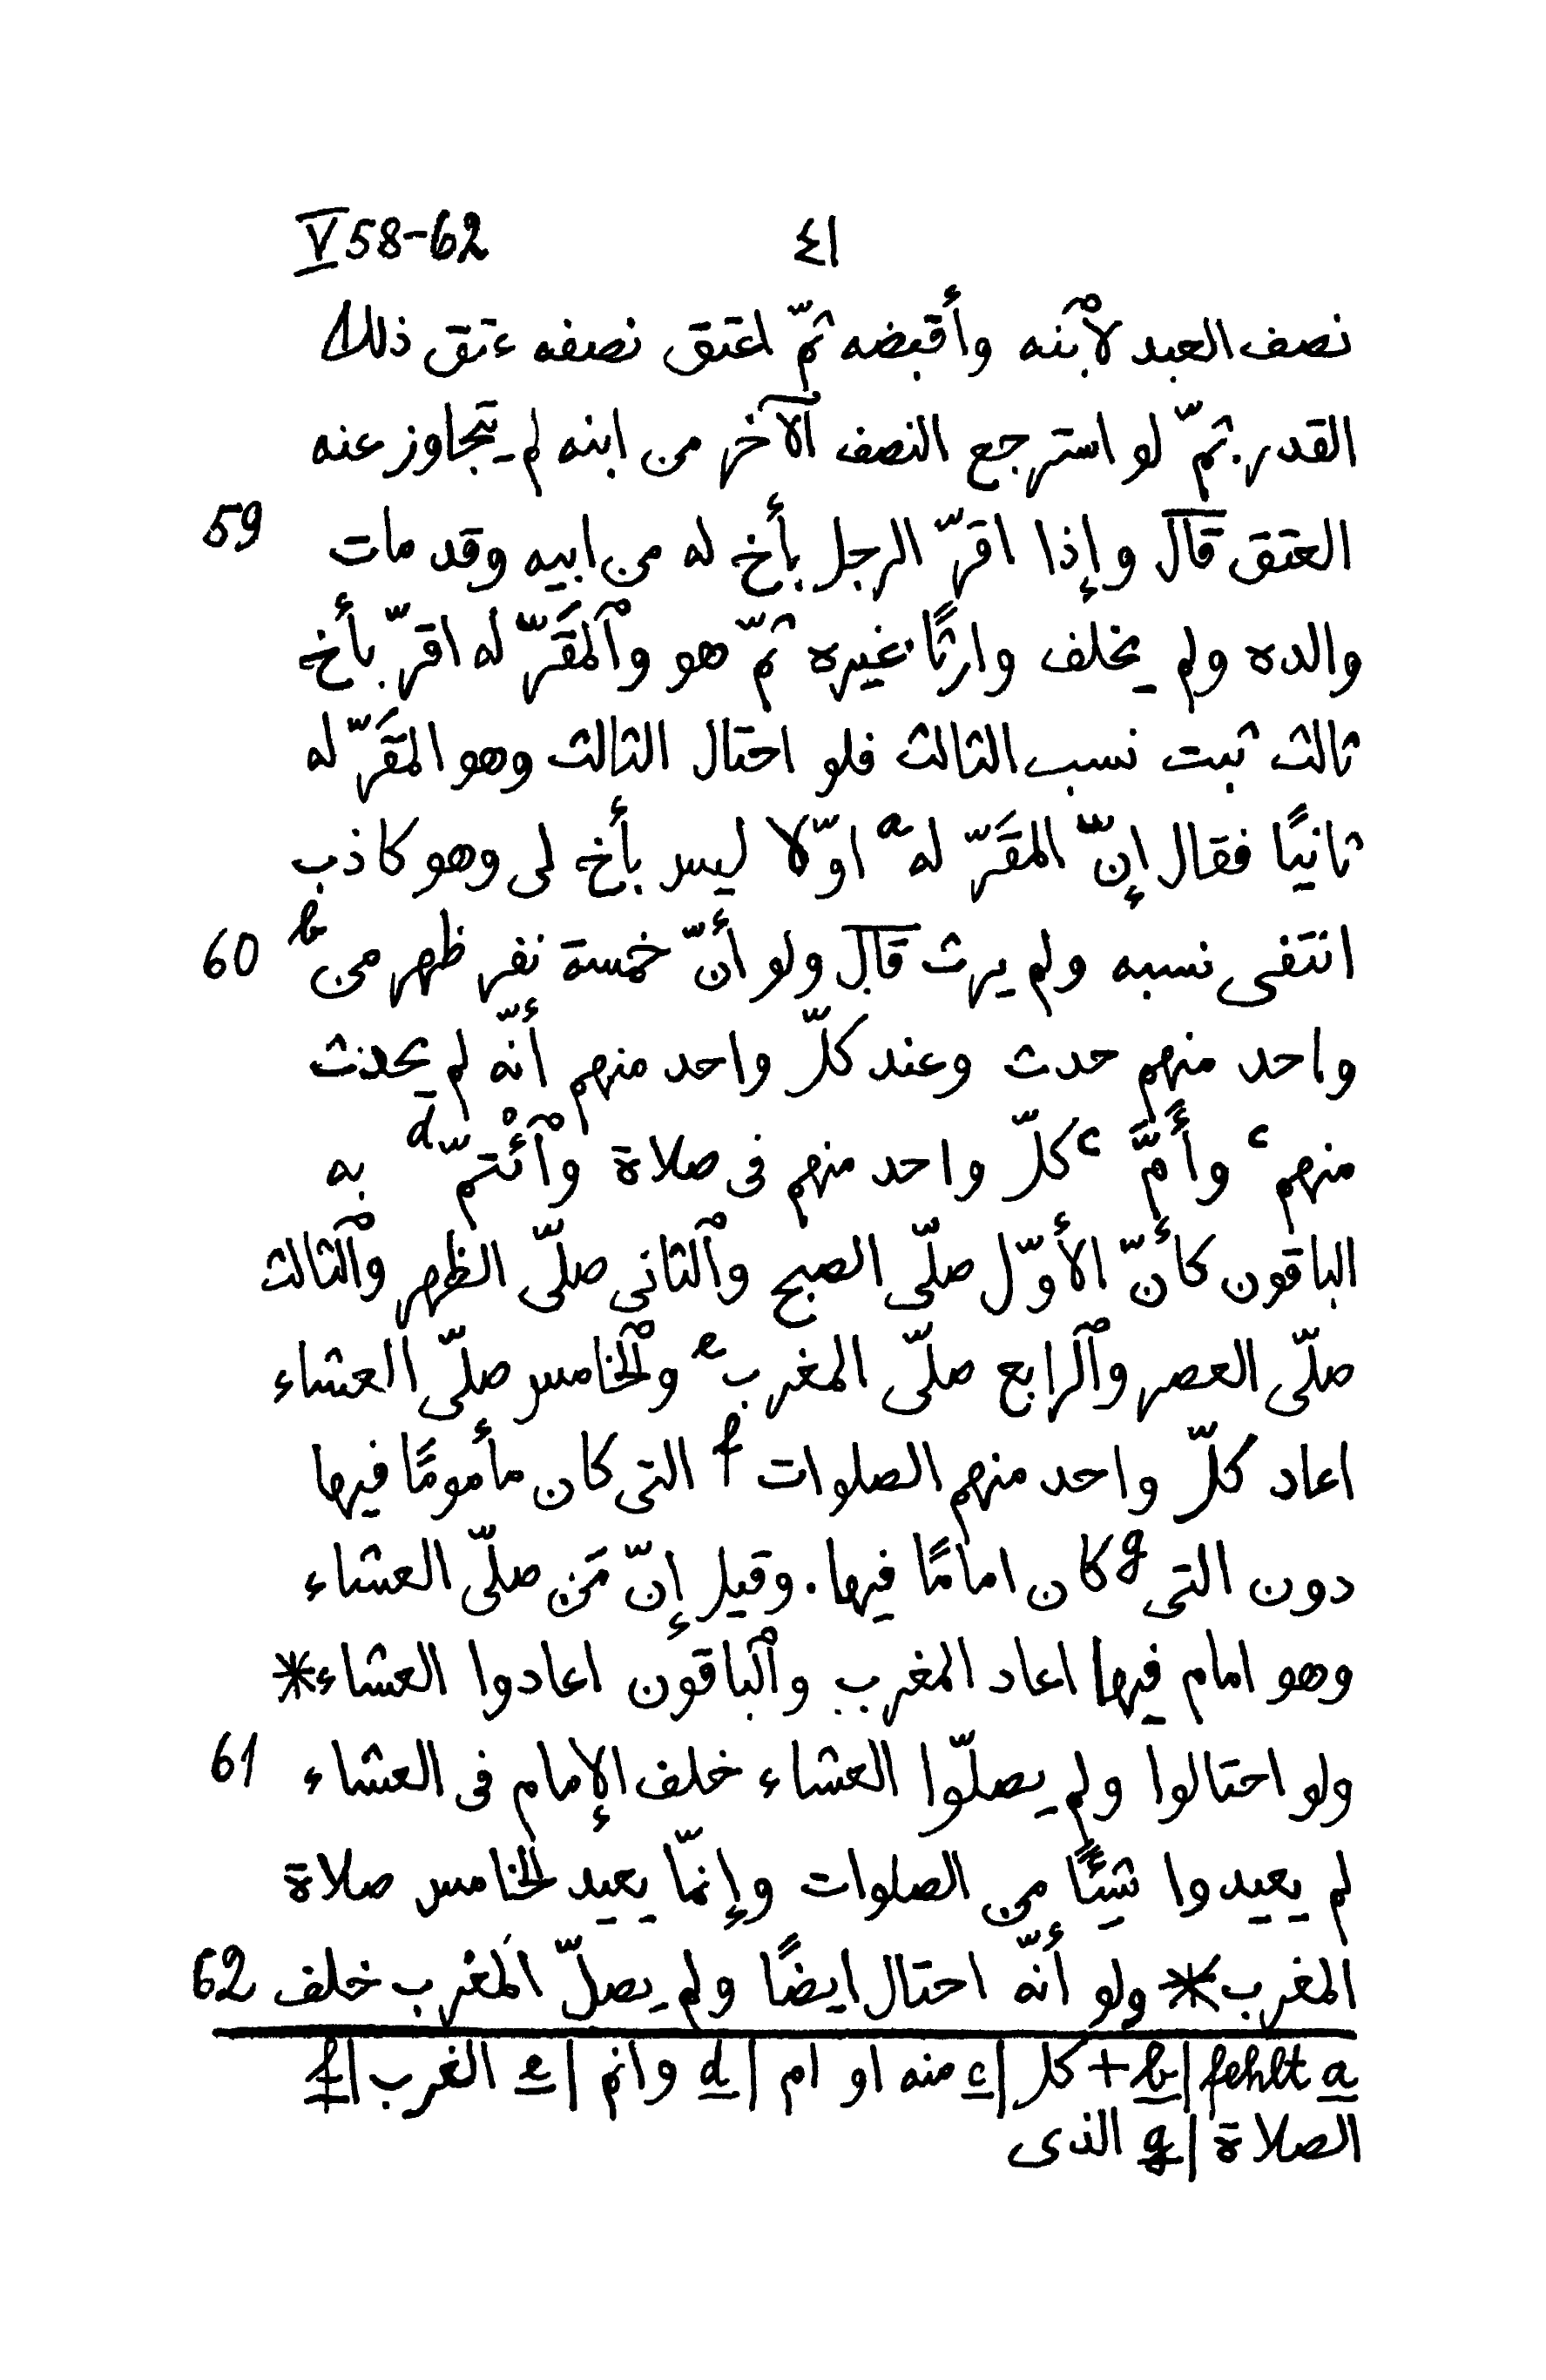 ٤١ V 58-62
نصف العبد لاٱبنه وأقبضه ثمّ اعتق نصفه عتق ذلك
القدر. ثمّ لو استرجع النصف الآخر من ابنه لم يتجاوز عنه
العتق قال وإذا اقرّ الرجل بأخ له من ابيه وقد مات 59
والده ولم يخلف وارثًا غيره ثمّ هو وٱلمقَرّ له اقرّ بأخ
ثالث ثبت نسب الثالث فلو احتال الثالث وهو المقَرّ له
ثانيًا فقال إنّ المقَرّ له a اوّلا ليس بأخ لى وهو كاذب
انتفى نسبه ولم يرث قال ولو أنّ خمسة نفر ظهر من b 60
واحد منهم حدث وعند كلّ واحد منهم أنّه لم يحدث
منهم c وأَمَّ c كلّ واحد منهم فى صلاة وٱئْتمّ d به
الباقون كأنّ الأوّل صلّى الصبح وٱلثانى صلّى الظهر وٱلثالث
صلّى العصر وٱلرابع صلّى المغرب e وٱلخامس صلّى العشاء
اعاد كلّ واحد منهم الصلوات f التى كان مأمومًا فيها
دون التى g كان امامًا فيها. وقيل إنّ مَن صلّى العشاء
وهو امام فيها اعاد المغرب وٱلباقون اعادوا العشاء*
ولو احتالوا ولم يصلّوا العشاء خلف الإمام فى العشاء 61
لم يعيدوا شيئًا من الصلوات وإنّما يعيد الخامس صلاة
المغرب* ولو أنّه احتال ايضًا ولم يصلّ المغرب خلف 62
a fehlt | b + كل | c منه او ام | d وانم | e الغرب | f
الصلاة | g الذى